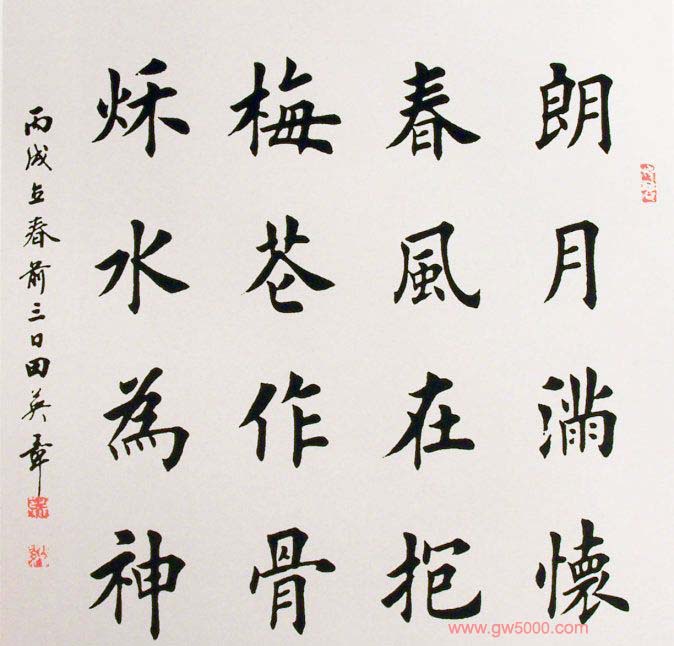 朗月滿懷
春風在抱
梅花作骨
秌水為神
丙戌立春前三日田英章
www.gw5000.com